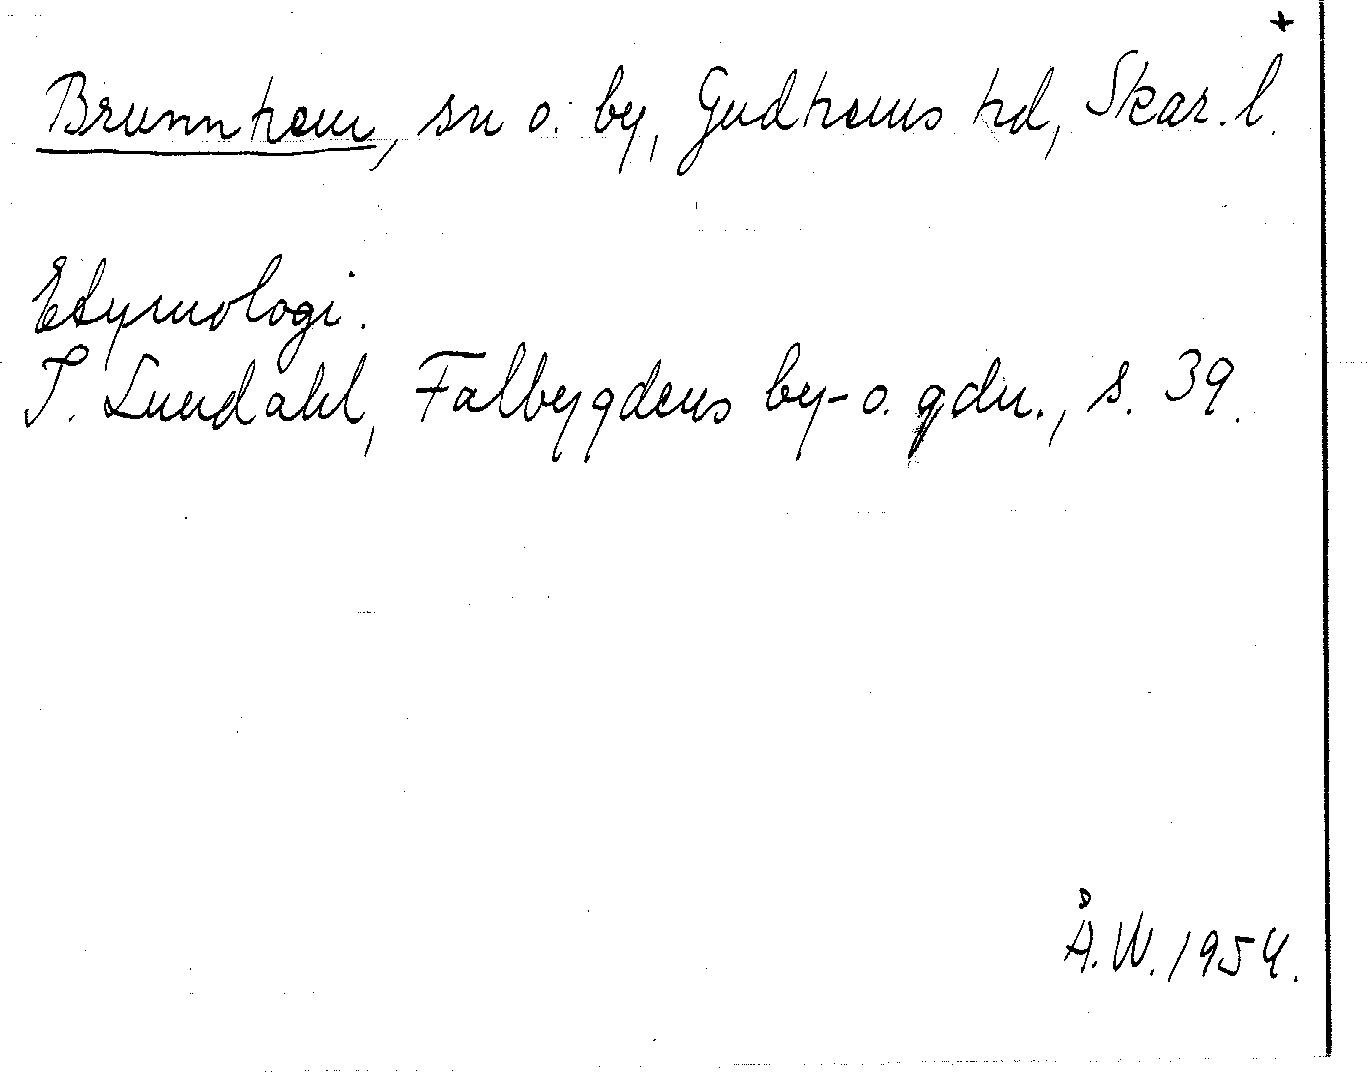 +
Brunnhem, sn o. by, Gudhems hd, Skar. l.
Etymologi.
I. Lundahl, Falbygdens by- o. gdn., s. 39.
Å.W. 1954.